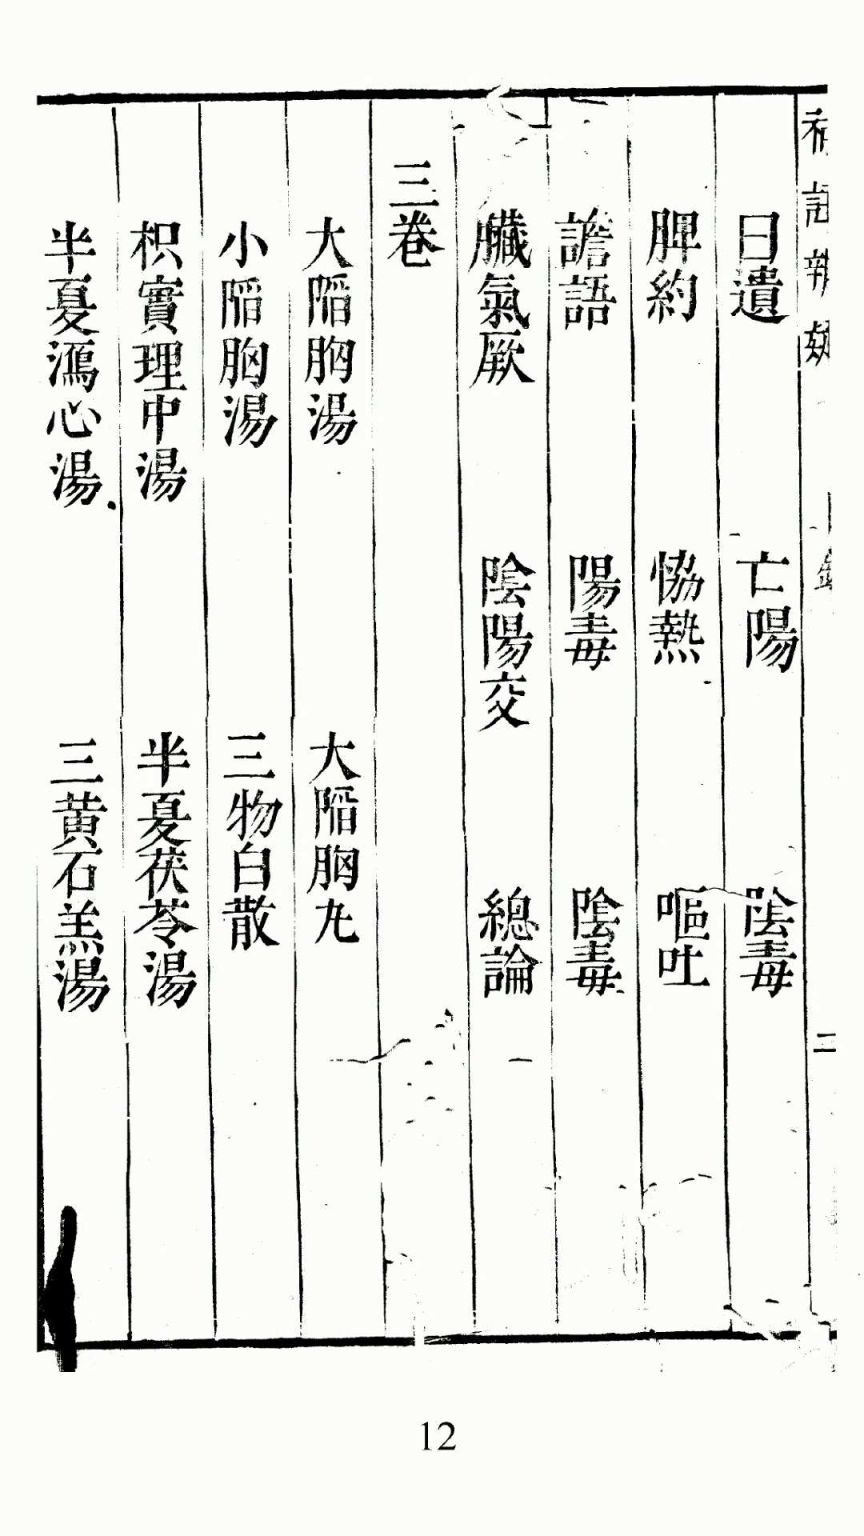 日遺　亡陽　陰毒
脾約　恊熱　嘔吐
譫語　陽毒　陰毒
臟氣厥　陰陽交　總論
三卷
大陷胸湯　大陷胸丸
小陷胸湯　三物白散
枳實理中湯　半夏茯苓湯
半夏瀉心湯　三黄石羔湯
二
12